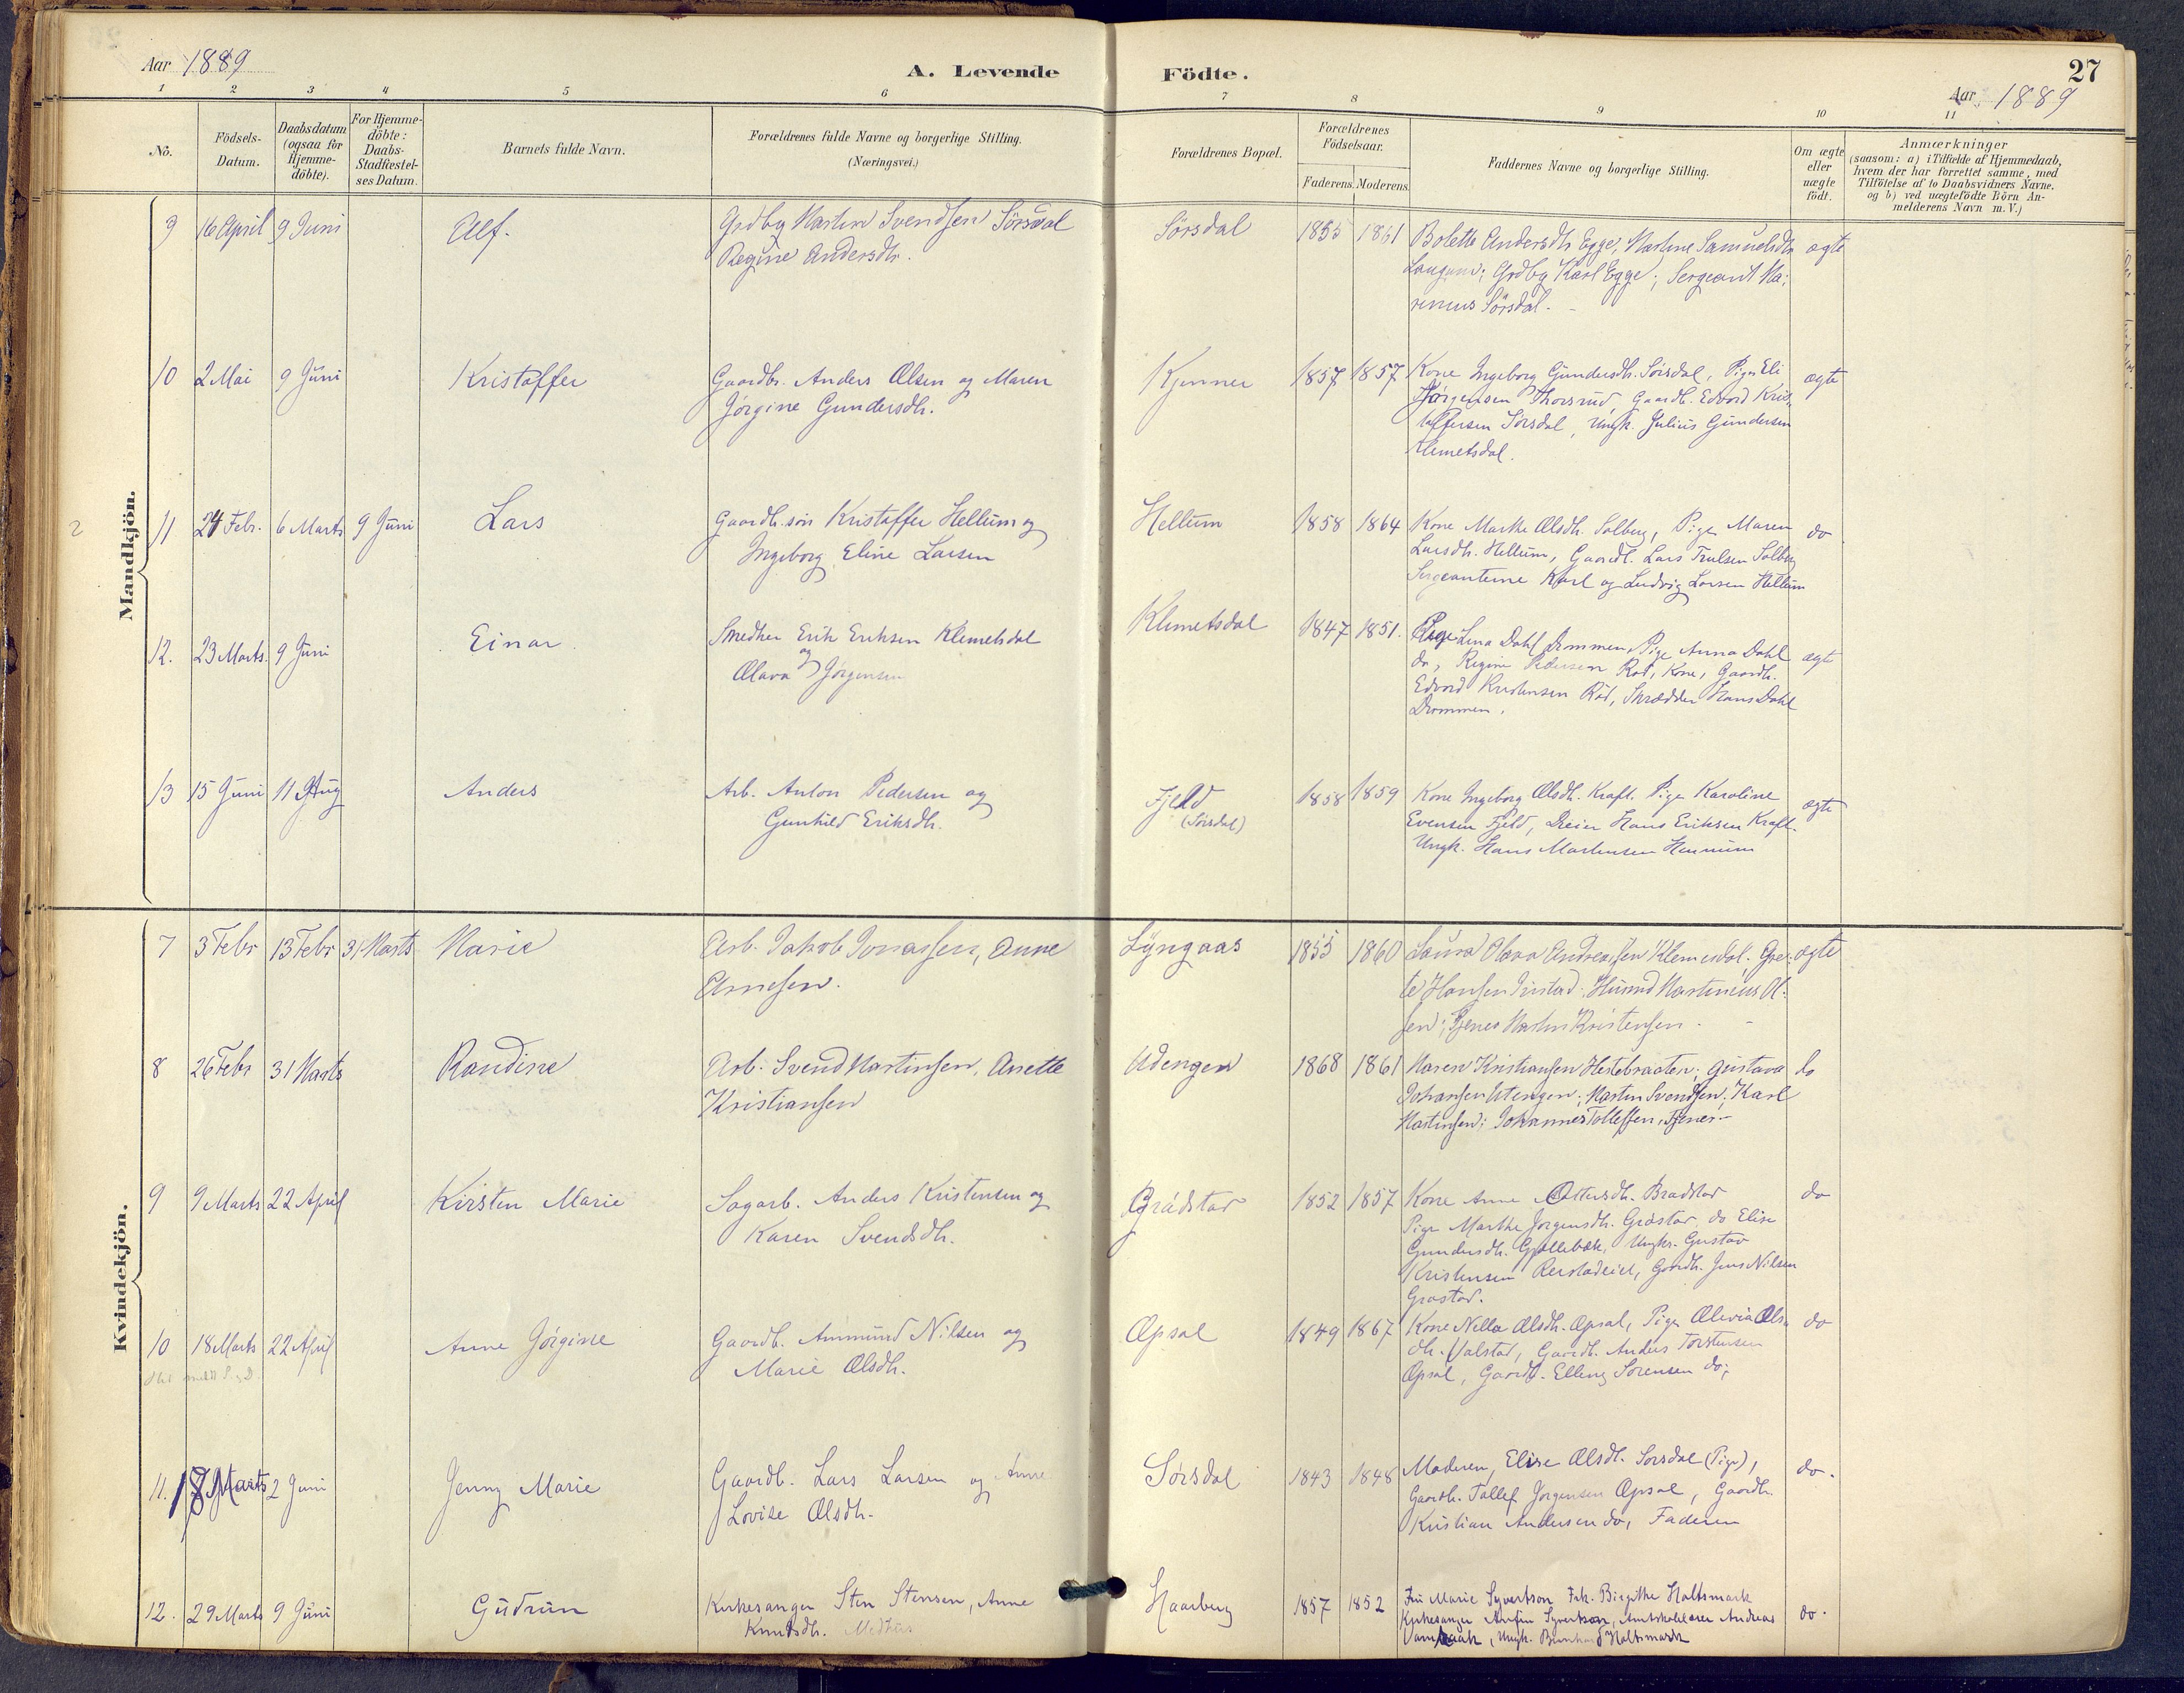 Aar 1889
A. Levende Födte.
27
Aar 1889
1 2 3 4 5 6 7 8 9 10 11
No.
Födsels-Datum.
Daabsdatum (ogsaa for Hjemme-döbte).
For Hjemme-döbte: Daabs-Stadfæstel-ses Datum.
Barnets fulde Navn.
Forældrenes fulde Navne og borgerlige Stilling.
(Næringsvei.)
Forældrenes Bopæl.
Forældrenes Födselsaar.
Faderens. Moderens.
Faddernes Navne og borgerlige Stilling.
Om ægte eller uægte födt.
Anmærkninger
(saasom: a) i Tilfælde af Hjemmedaab,
hvem der har forrettet samme, med
Tilföielse af to Daabsvidners Navne.
og b) ved uægtefödte Börn An-
melderens Navn m. V.)
Mandkjön.
9 16 April 9 Juni Alf. Grdbg Martin Svendsen Sörsdal Sörsdal 1855 1861 Bolette Andersdtr Egge, Martine Samuelsdtr ægte
Regine Andersdtr.
Grdbg Karl Egge; Sergeant Ma-
rinius Sörsdal.
10 2 Mai 9 Juni Kristoffer Gaardbr. Anders Olsen og Maren Kjenner 1857 1857 Kone Ingeborg Gundersdh. Sörsdal, Pige Eli ægte
Jörgine Gundersdh.
Jörgensen Thorsrud, Gaardb. Edvard Kris-
toffersen Sörsdal, Ungk. Julius Gundersen
Klemetsdal.
2
11 24 Febr. 6 Marts 9 Juni Lars Gaardb. sön Kristoffer Hellum og Hellum 1858 1864 Kone Marthe Olsdh. Solberg, Pige Maren do
Ingeborg Eline Larsen
Larsdh. Hellum, Gaardb. Lars Trulsen Solberg
Sergeanterne Karl og Ludvig Larsen Hellum
12. 23 Marts. 9 Juni Einar Smedker Erik Eriksen Klemetsdal Klemetsdal 1847 1851. Pige Lina Dahl Drammen, Pige Anna Dahl ægte
og
Olava Jörgensen
do, Regine Pedersen Röd, Kone, Gaardb.
Edvard Kristensen Röd, Skrædder Hans Dahl
Drammen.
13 15 Juni 11 Aug Anders Arb. Anton Pedersen og Fjeld 1858 1859 Kone Ingeborg Olsdh. Kraft. Pige Karoline ægte
(Sörsdal)
Gunhild Eriksdh.
Evensen Fjeld, Dreier Hans Eriksen Kraft.
Ungk. Hans Martinsen Hennum
Kvindekjön.
7 3 Febr 13 Febr 31 Marts Marie Arb. Jakob Jonassen, Anne Lyngaas 1855 1860 Laura Olava Andreassen Klemesdal; Gre- ægte
Arnesen.
te Hansen; Husmd Martinius Ol-
sen; Tjener Martin Kristensen.
8 26 Febr 31 Marts Randine Arb. Svend Martinsen, Anette Udengen 1868 1861 Maren Kristiansen Hestebraaten; Gustava do
Kristiansen
Johansen Utengen; Martin Svendsen; Karl
Martinsen; Johannes Tollefsen, Tjener
9 9 Marts 22 April Kirsten Marie Sagarb. Anders Kristensen og Grådstad 1852 1857 Kone Anne Ottersdh. Bradstad do
Karen Svendsdh.
Pige Marthe Jörgensdh. Gråstad, do Elise
Gundersdh. Gjellebæk, Ungk. Gustav
Kristensen, Gaardb. Jens Nilsen
Grostad.
10 18 Marts 22 April Anne Jörgine Gaardb. Ammund Nilsen og Opsal 1849 1867 Kone Nella Olsdh. Opsal, Pige Olivia Ols- do
Marie Olsdh.
dh. Valstad, Gaardb. Anders Torstensen
Opsal, Gaardb. Elling Sörensen do;
11. 17 Marts 2 Juni Jenny Marie Gaardb. Lars Larsen og Anne Sörsdal 1843 1848 Moderen, Elise Olsdh. Sorsdal (Pige), do.
Lovise Olsdh.
Gaardb. Tollef Jörgensen Opsal, Gaardb.
Kristian Andersen do, Faderen
12. 29 Marts 9 Juni Gudrun Kirkesanger Sten Stensen, Anne Haarberg 1857 1852 Fru Marie Syvertson Frk. Birgithe Holtsmark do.
Knudsdh. Medhus
Kirkesanger Anfin Syvertson, Amtskolelærer Andreas
Vambaak, Ungk. Bernhard Holtsmark